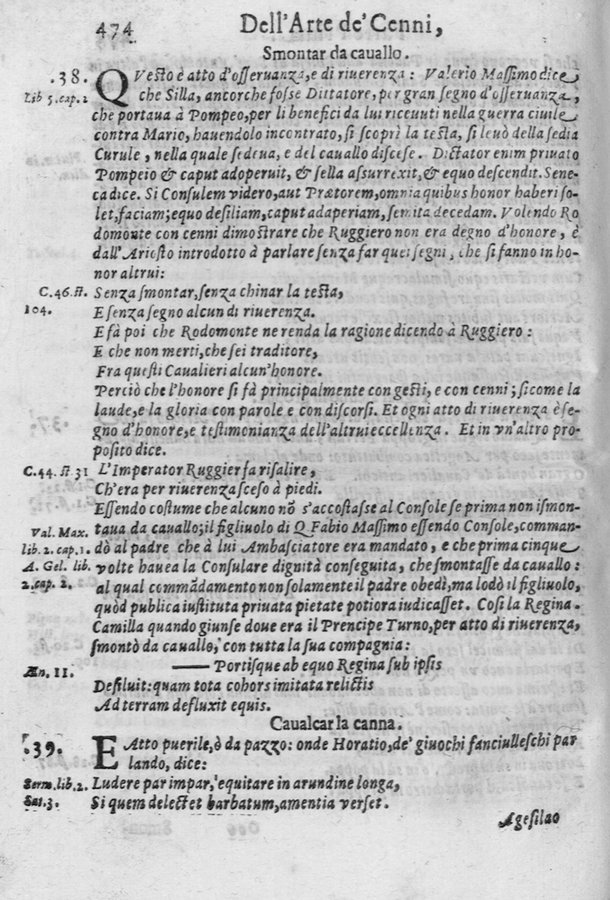 474 Dell'Arte de' Cenni,
Smontar da cauallo.
.38. QVesto è atto d'osseruanza, e di riuerenza: Valerio Massimo dice,
Lib 5. cap. 2 che Silla, ancorche fosse Dittatore, per gran segno d'osseruanza,
che portaua à Pompeo, per li benefici da lui riceuuti nella guerra ciuile
contra Mario, hauendolo incontrato, si scoprì la testa, si leuò della sedia
Curule, nella quale sedeua, e del cauallo discese. Dictator enim priuato
Pompeio & caput adoperuit, & sella assurrexit, & equo descendit. Sene-
ca dice. Si Consulem videro, aut Prætorem, omnia quibus honor haberi so-
let, faciam; equo desiliam, caput adaperiam, semita decedam. Volendo Ro
domonte con cenni dimostrare che Ruggiero non era degno d'honore, è
dall'Ariosto introdotto à parlare senza far quei segni, che si fanno in ho-
nor altrui:
C.46. st. Senza smontar, senza chinar la testa,
104. E senza segno alcun di riuerenza.
E fà poi che Rodomonte ne renda la ragione dicendo à Ruggiero:
E che non merti, che sei traditore,
Fra questi Caualieri alcun'honore.
Perciò che l'honore si fà principalmente con gesti, e con cenni; sicome la
laude, e la gloria con parole e con discorsi. Et ogni atto di riuerenza è se-
gno d'honore, e testimonianza dell'altrui eccellenza. Et in vn'altro pro-
posito dice.
C.44. st. 31 L'Imperator Ruggier fa risalire,
Ch'era per riuerenza sceso à piedi.
Essendo costume che alcuno nō s'accostasse al Console se prima non ismon-
Val. Max. taua da cauallo; il figliuolo di Q. Fabio Massimo essendo Console, comman-
lib. 2. cap. 1. dò al padre che à lui Ambasciatore era mandato, e che prima cinque
A. Gel. lib. volte hauea la Consulare dignità conseguita, che smontasse da cauallo:
2. cap. 2. al qual commādamento non solamente il padre obedì, ma lodò il figliuolo,
quòd publica iustituta priuata pietate potiora iudicasset. Così la Regina
Camilla quando giunse doue era il Prencipe Turno, per atto di riuerenza,
smontò da cauallo, con tutta la sua compagnia:
Æn. 11. —— Portisque ab equo Regina sub ipsis
Desiluit: quam tota cohors imitata relictis
Ad terram defluxit equis.
Caualcar la canna.
.39. E Atto puerile, ò da pazzo: onde Horatio, de' giuochi fanciulleschi par
lando, dice:
Serm. lib. 2. Ludere par impar, equitare in arundine longa,
Sat. 3. Si quem delectet barbatum, amentia verset.
Agesilao